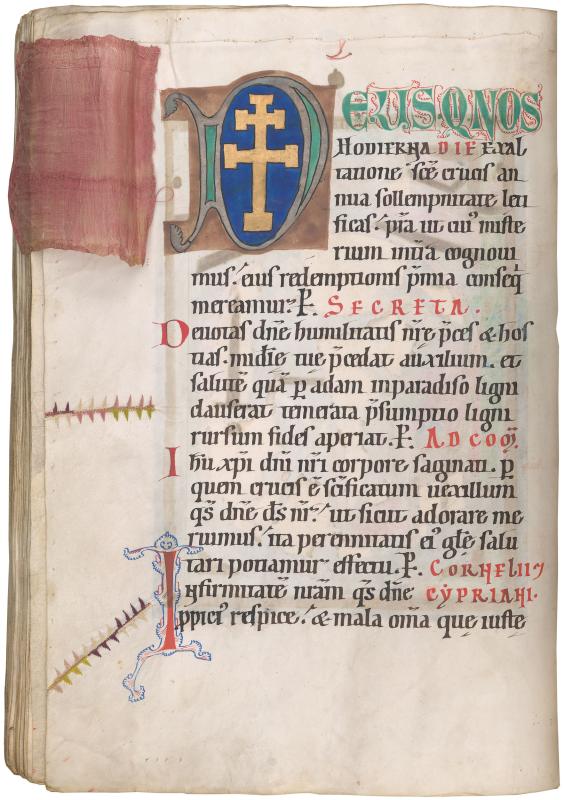 DEUS·Q̅ NOS
HODIERNA DIE EXAL
tatione sc̄e crucis an
nua sollempnitate leti
ficas. p̄sta ut cuiꝰ miste
rium in t̄ra cognoui
mus. eius redemptionis p̄mia conseq̄
mereamur. P̄. SECRETA.
Deuotas dn̄e humilitatis nr̄e p̄ces & hos
tias. mīdie tue p̄cedat auxilium. et
salutē quā p̲ adam in paradiso ligni
clauserat temerata p̄sumptio ligni
rursum fides aperiat. P̄. AD COM̄.
Ihu xp̄i dn̄i nr̄i corpore saginati. p̲
quem crucis ē sc̄ificatum uexillum
qs̄ dn̄e ds̄ nr̄. ut sicut adorare me
ruimus. ita perennitatis eiꝰ gl̄e salu
tari potiamur effectu. P̄. CORNELII 7
Infirmitatē nr̄am qs̄ dn̄e CYPRIANI.
ppiciꝰ respice. & mala om̄a que iuste